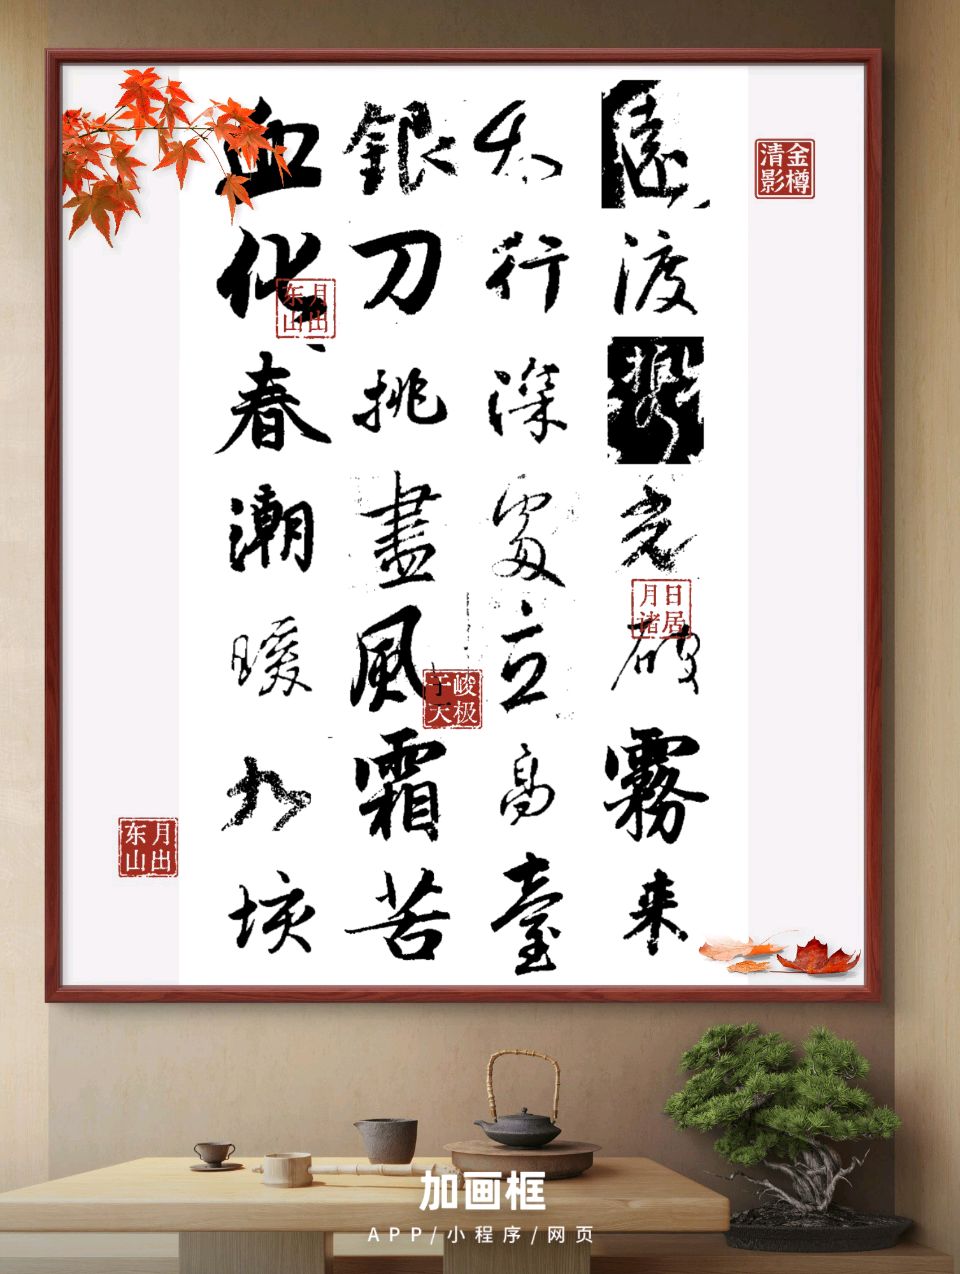 遠渡光破霧来
太行深處立高臺
銀刀挑盡風霜苦
血化春潮暖九垓
金樽清影
日居月诸
峻极于天
月出东山
月出东山
加画框
APP/小程序/网页